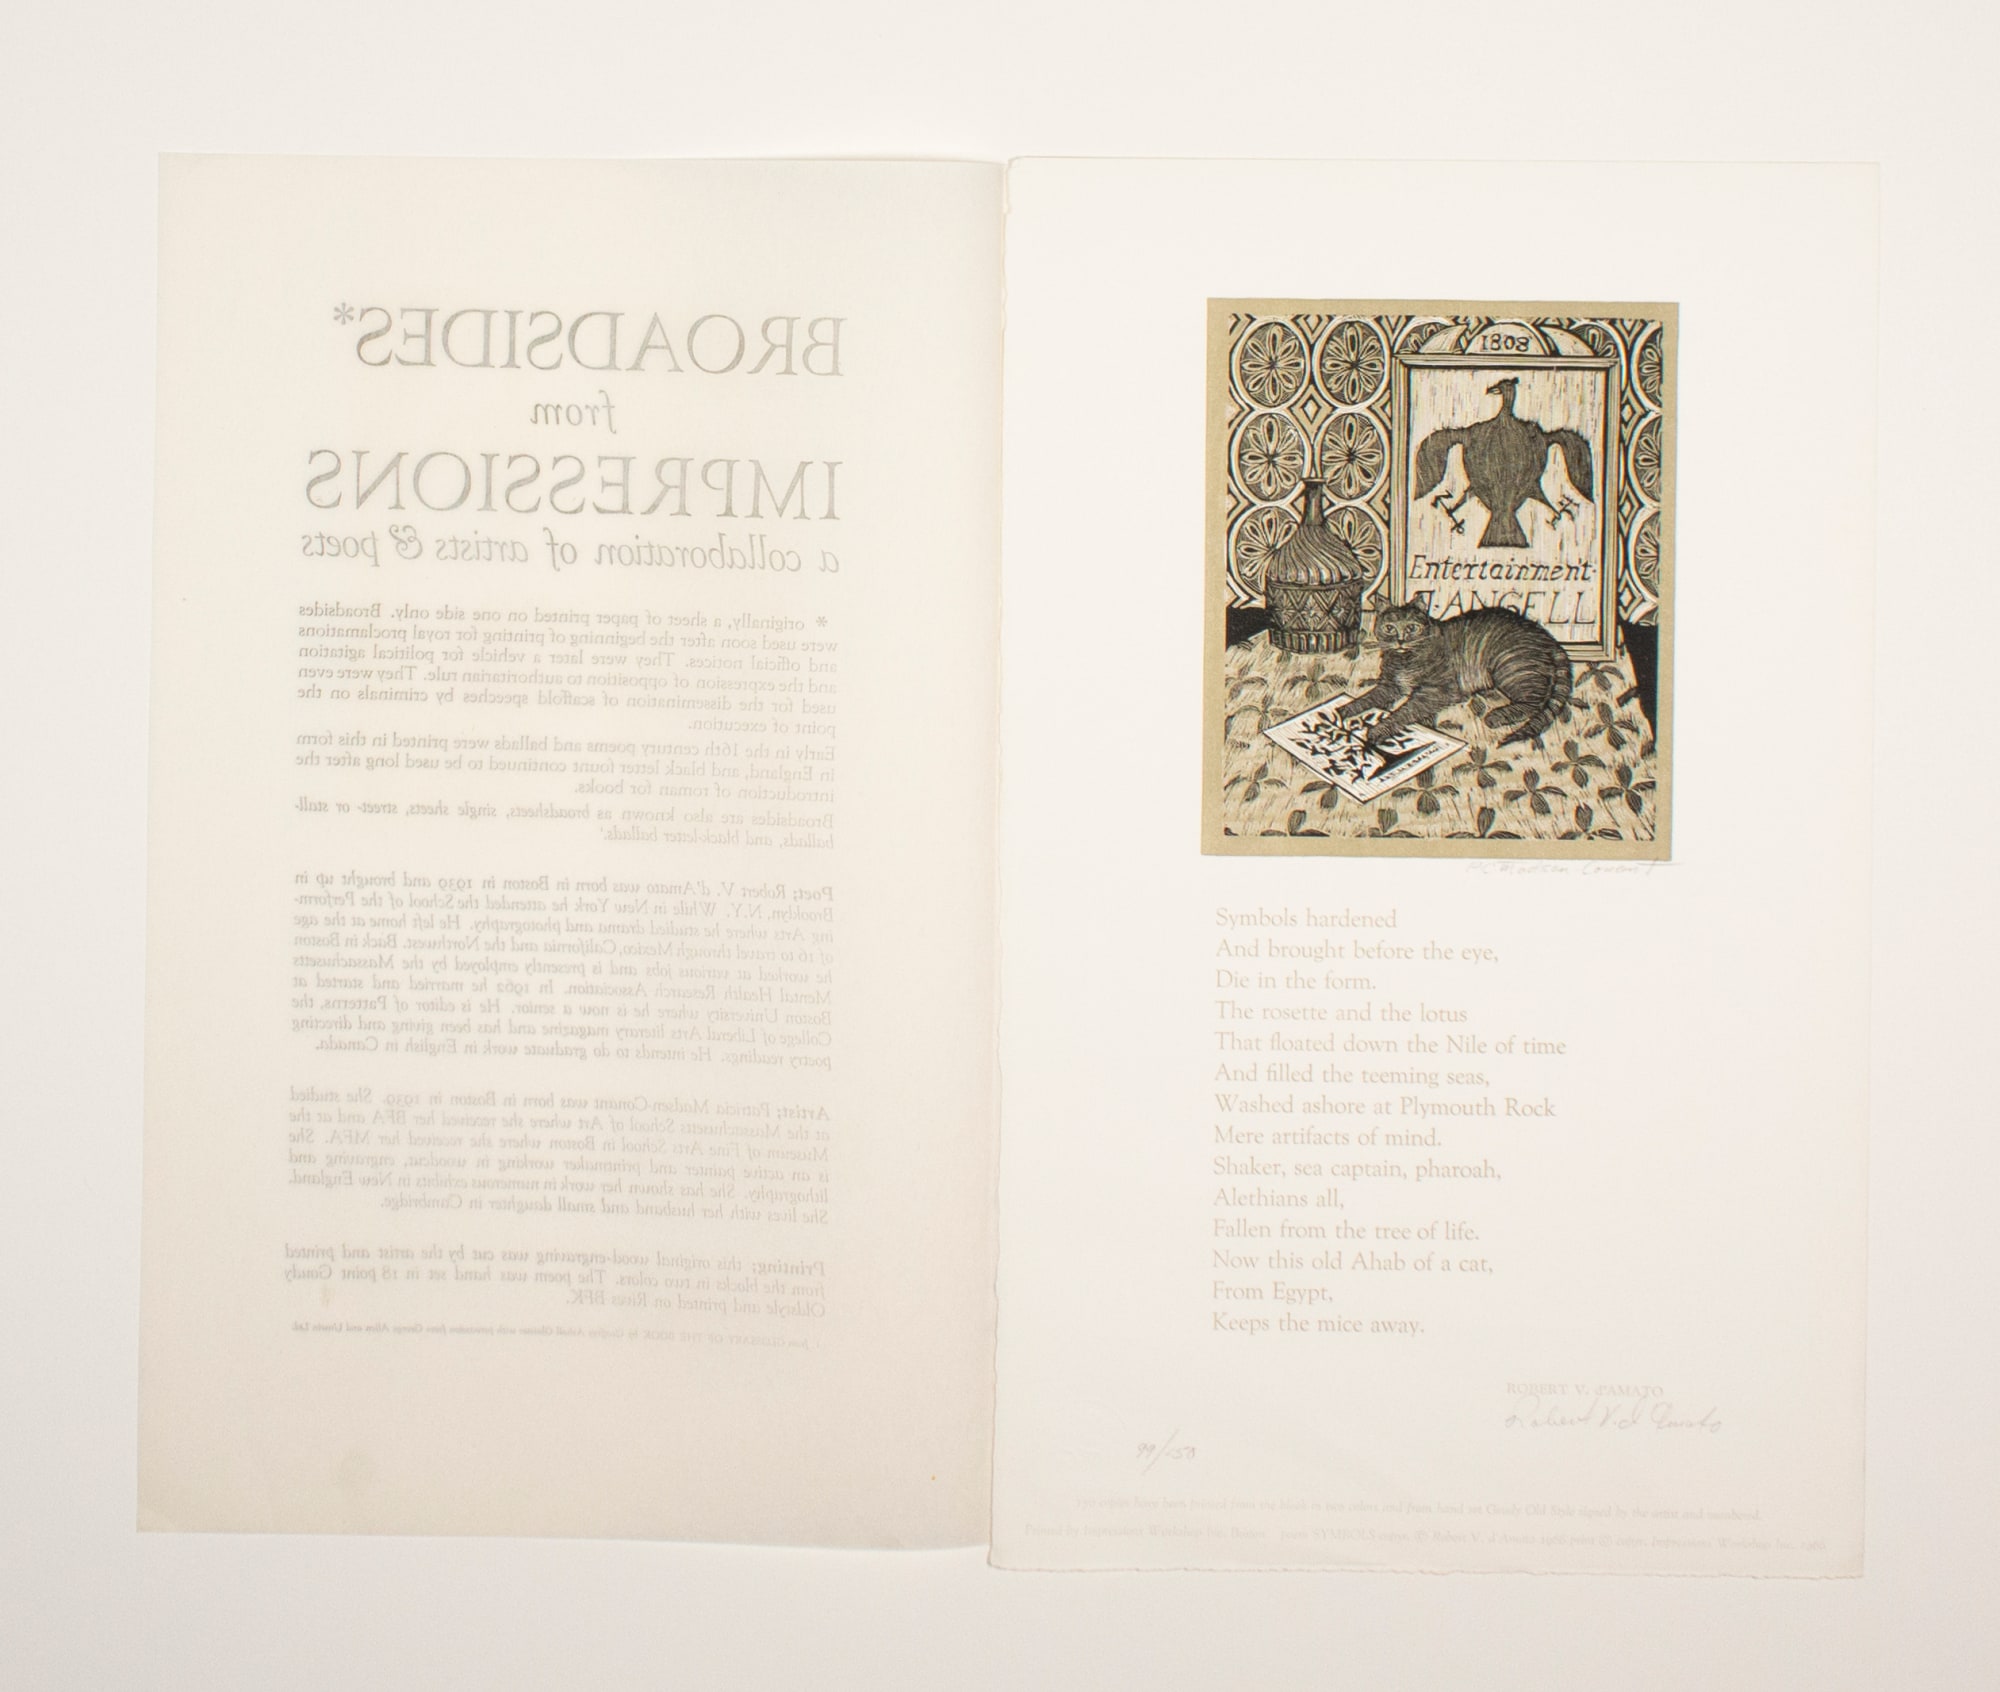 BROADSIDES*
from
IMPRESSIONS
a collaboration of artists & poets
* originally, a sheet of paper printed on one side only. Broadsides
were used soon after the beginning of printing for royal proclamations
and official notices. They were later a vehicle for political agitation
and the expression of opposition to authoritarian rule. They were even
used for the dissemination of scaffold speeches by criminals on the
point of execution.
Early in the 16th century poems and ballads were printed in this form
in England, and black letter fount continued to be used long after the
introduction of roman for books.
Broadsides are also known as broadsheets, single sheets, street- or stall-
ballads, and black-letter ballads.'
Poet; Robert V. d'Amato was born in Boston in 1939 and brought up in
Brooklyn, N.Y. While in New York he attended the School of the Perform-
ing Arts where he studied drama and photography. He left home at the age
of 16 to travel through Mexico, California and the Northwest. Back in Boston
he worked at various jobs and is presently employed by the Massachusetts
Mental Health Research Association. In 1962 he married and started at
Boston University where he is now a senior. He is editor of Patterns, the
College of Liberal Arts literary magazine and has been giving and directing
poetry readings. He intends to do graduate work in English in Canada.
Artist; Patricia Madsen-Conant was born in Boston in 1939. She studied
at the Massachusetts School of Art where she received her BFA and at the
Museum of Fine Arts School in Boston where she received her MFA. She
is an active painter and printmaker working in woodcut, engraving and
lithography. She has shown her work in numerous exhibits in New England.
She lives with her husband and small daughter in Cambridge.
Printing; this original wood-engraving was cut by the artist and printed
from the blocks in two colors. The poem was hand set in 18 point Goudy
Oldstyle and printed on Rives BFK.
1. from GLOSSARY OF THE BOOK by Geoffrey Ashall Glaister with permission from George Allen and Unwin Ltd.
1808
Entertainment
ANGELL
Symbols hardened
And brought before the eye,
Die in the form.
The rosette and the lotus
That floated down the Nile of time
And filled the teeming seas,
Washed ashore at Plymouth Rock
Mere artifacts of mind.
Shaker, sea captain, pharoah,
Alethians all,
Fallen from the tree of life.
Now this old Ahab of a cat,
From Egypt,
Keeps the mice away.
ROBERT V. d'AMATO
Robert V. d'Amato
99/150
150 copies have been printed from the block in two colors and from hand set Goudy Old Style signed by the artist and numbered.
Printed by Impressions Workshop Inc. Boston. poem SYMBOLS copyr. © Robert V. d'Amato 1966 print © copyr. Impressions Workshop Inc. 1966